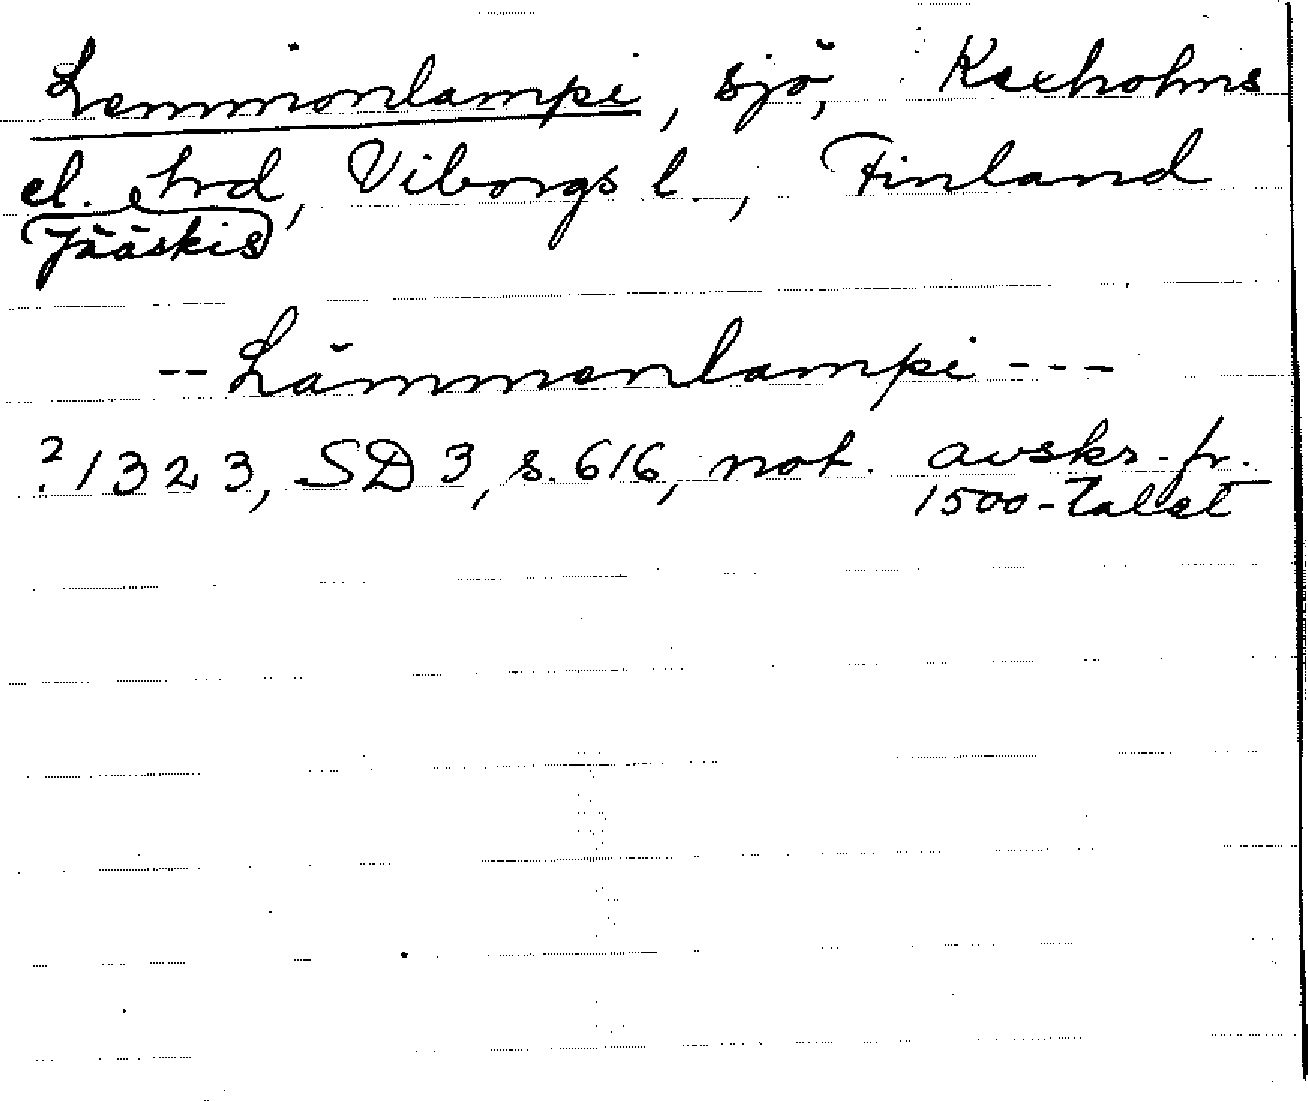 Lemmonlampi, sjö, Kexholms
el. hrd, Viborgs l., Finland
Jääskis
-- Lämmenlampi ---
?1323, SD 3, s. 616, not. avskr. fr.
1500-talet